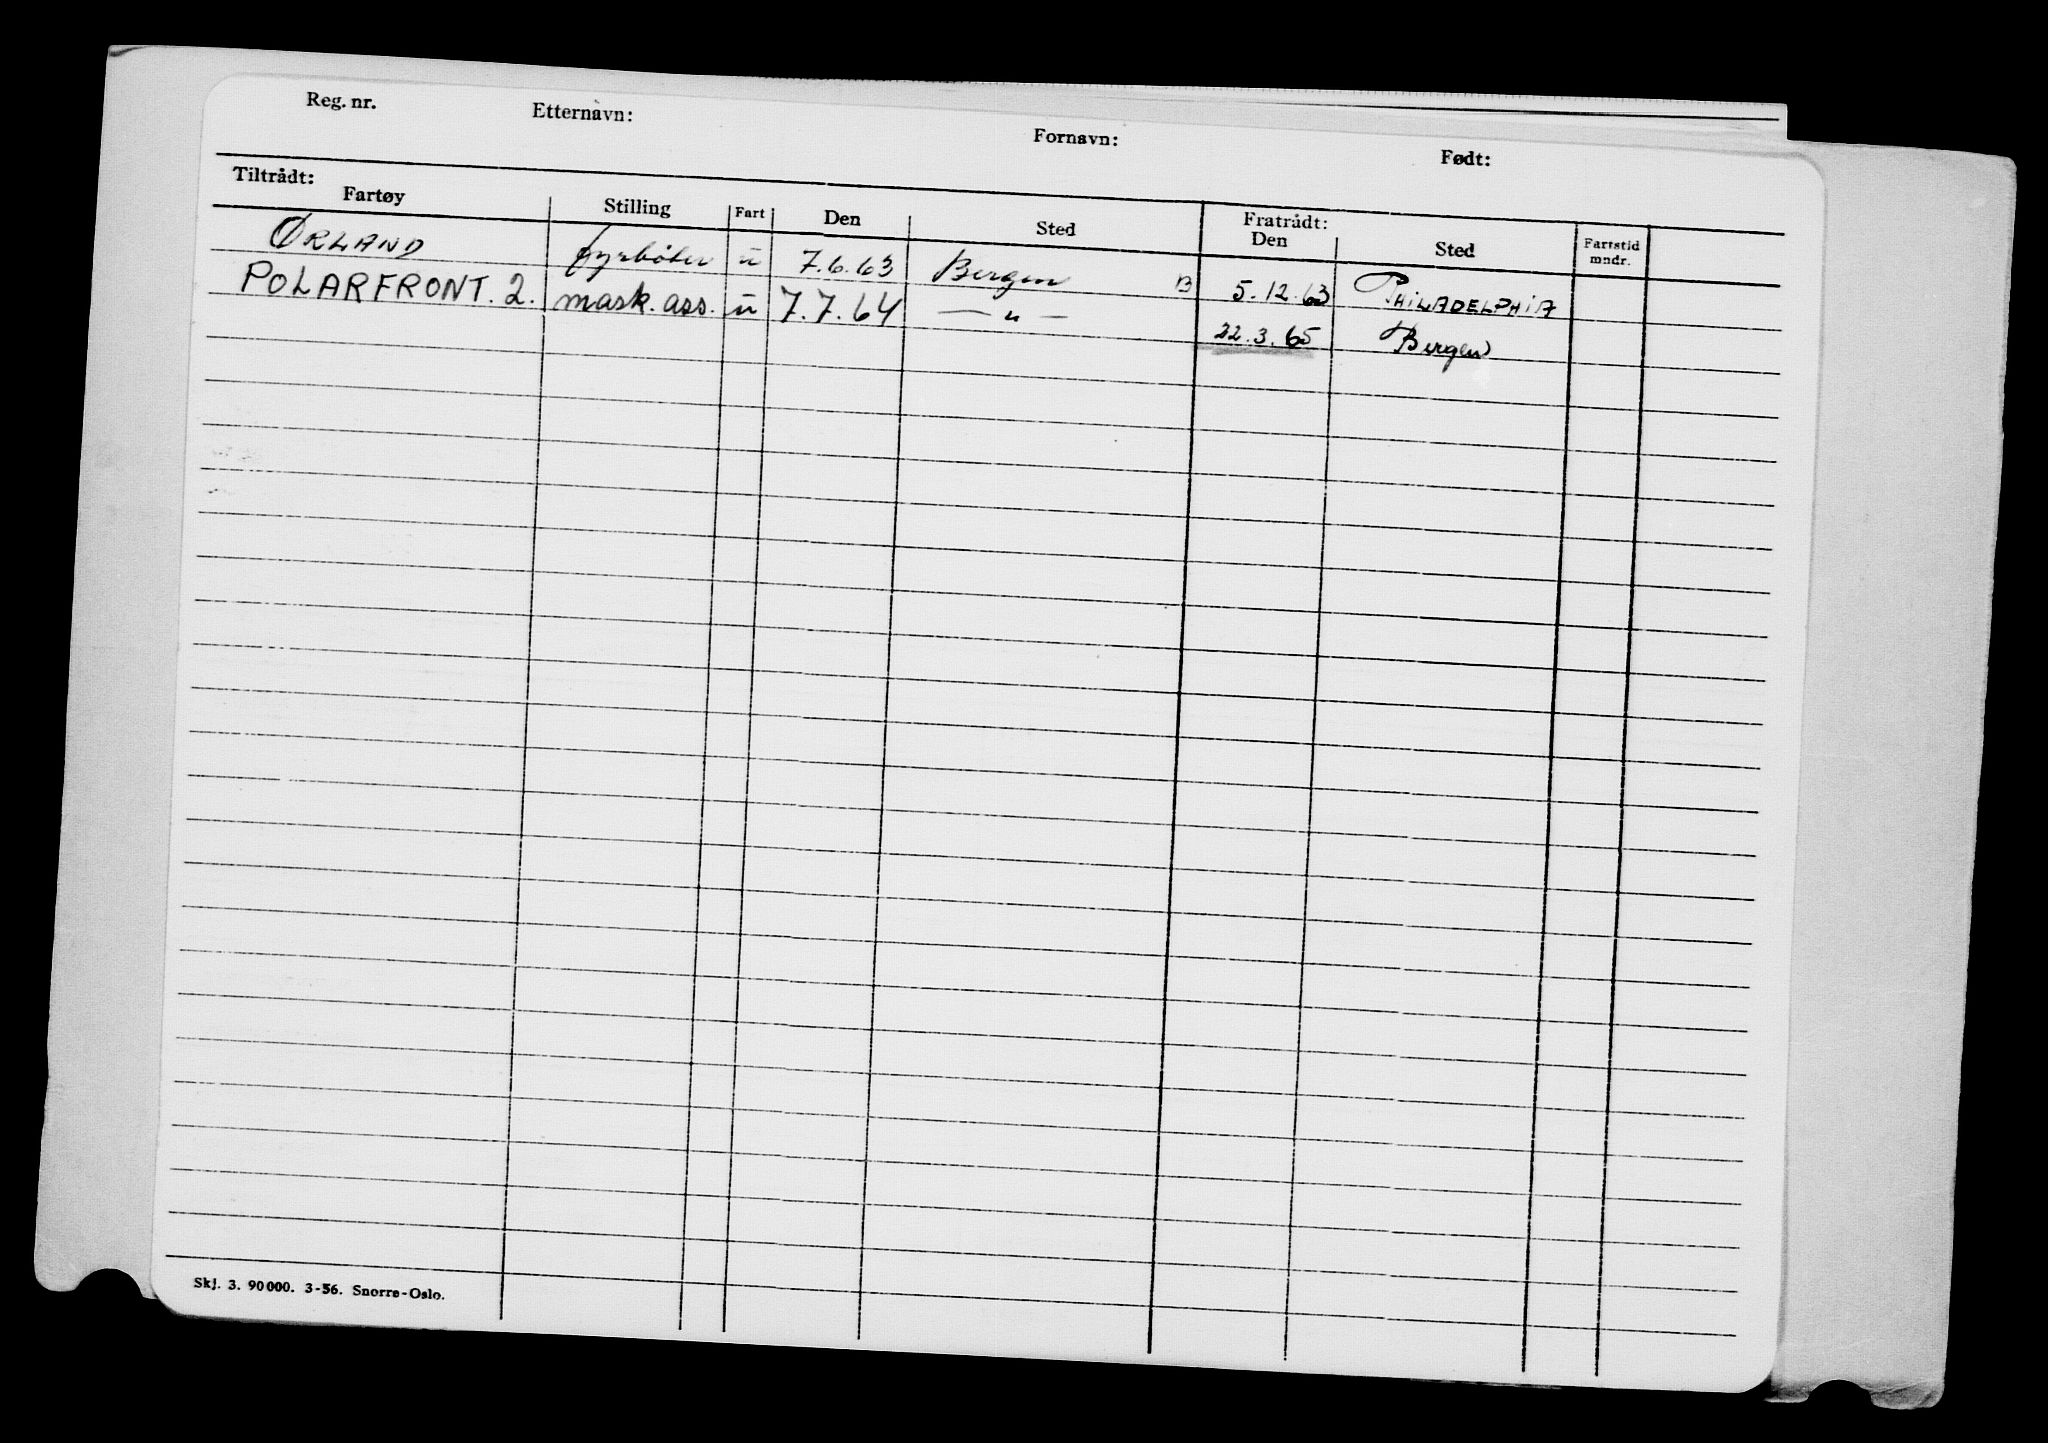 Reg. nr. Etternavn: Fornavn: Født:
Tiltrådt: Fratrådt:
Fartøy Stilling Fart Den Sted Den Sted Fartstid mndr.
ØRLAND fyrbøter u 7.6.63 Bergen B 5.12.63 PHILADELPHIA
POLARFRONT. 2. mask. ass. u 7.7.64 — " — 22.3.65 Bergen
Skj. 3. 90000. 3-56. Snorre-Oslo.